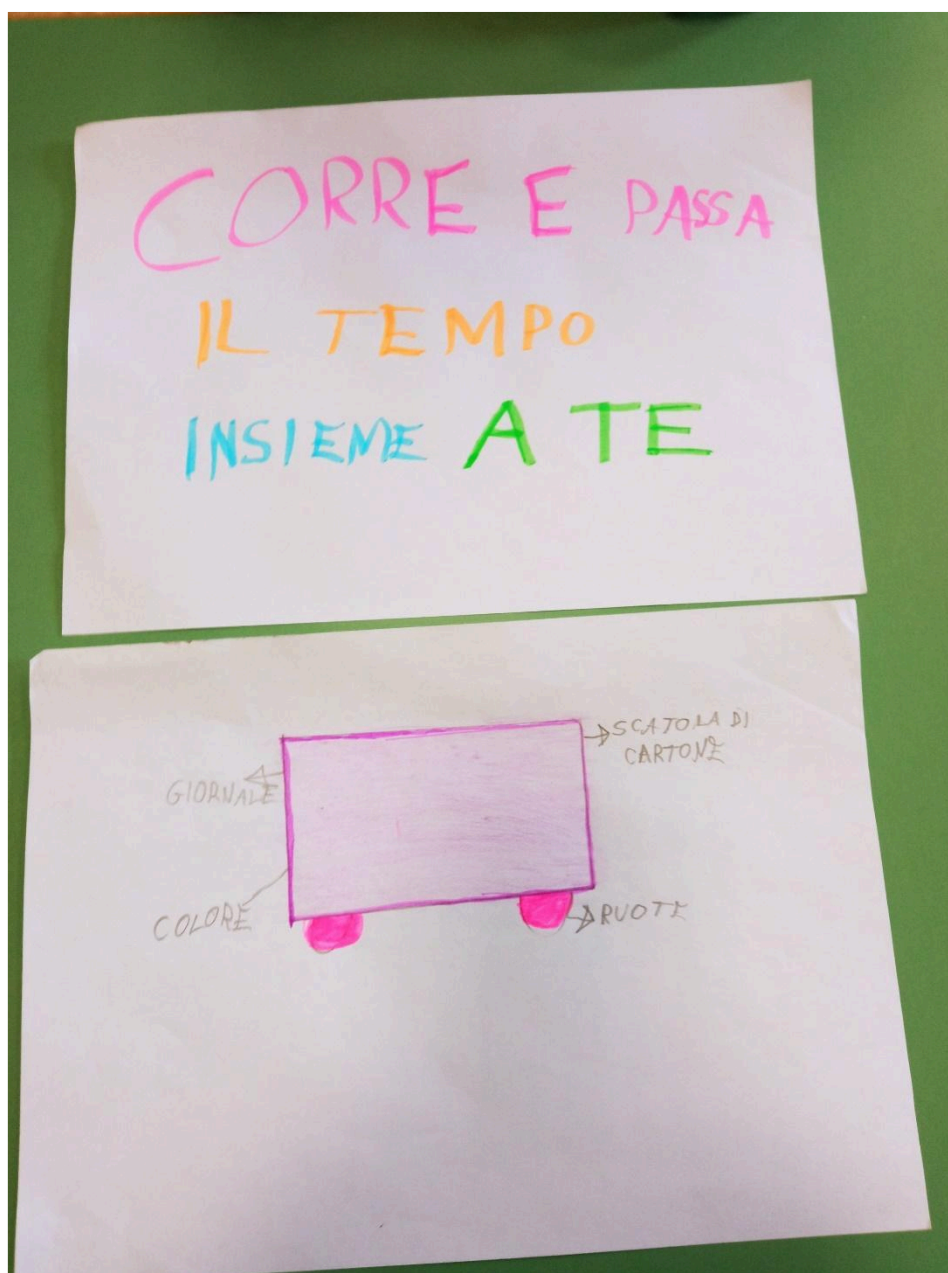 CORRE E PASSA
IL TEMPO
INSIEME A TE
SCATOLA DI
CARTONE
GIORNALE
COLORE
RUOTE